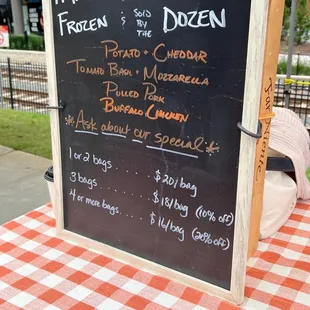 FROZEN : SOLD BY THE DOZEN
POTATO + CHEDDAR
TOMATO BASIL + MOZZARELLA
PULLED PORK
BUFFALO CHICKEN
*Ask about our special*
1 or 2 bags ..... $20/bag
3 bags ........ $18/bag (10% off)
4 or more bags ..... $16/bag (20% off)